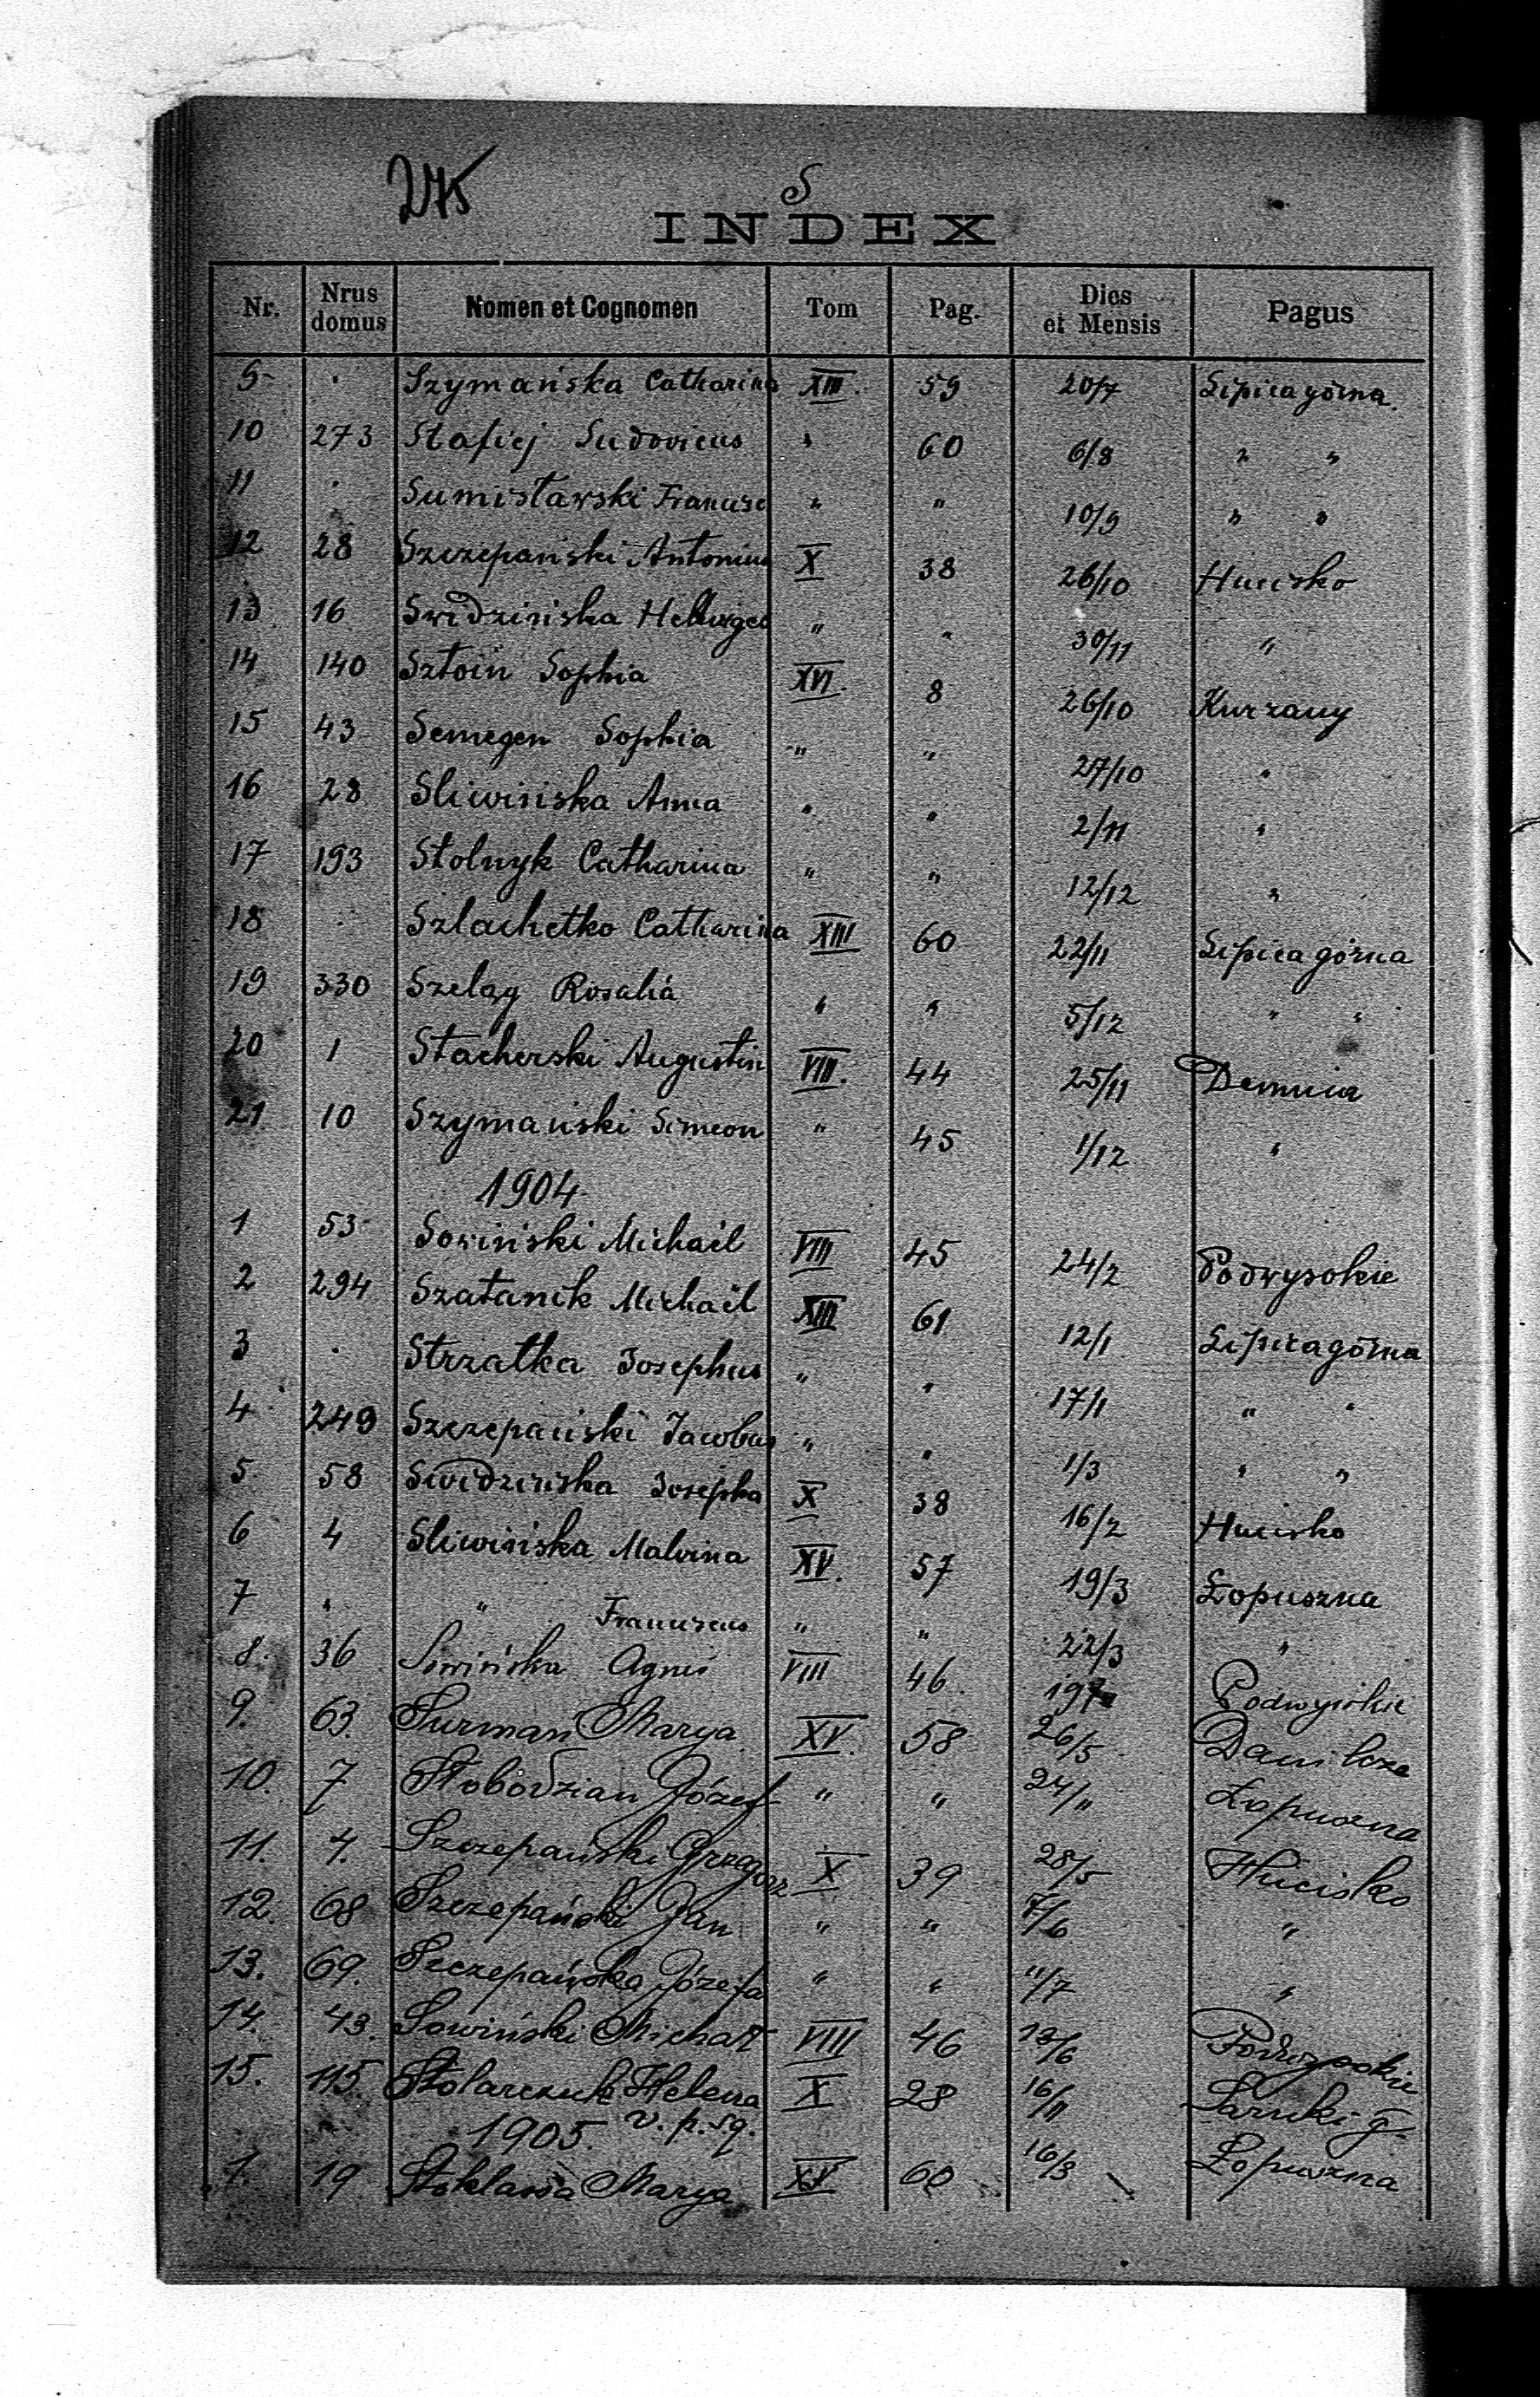 275
S
INDEX
Nr. Nrus domus Nomen et Cognomen Tom Pag. Dies et Mensis Pagus
9 · Szymańska Catharina XIII. 59 20/7 Lipica górna.
10 273 Stafiej Ludovicus " 60 6/8 " "
11 · Sumisławski Francisc " " 10/9 " "
12 28 Szczepański Antonius X 38 26/10 Hucisko
13 16 Swidzińska Hedwiges " " 30/11 "
14 140 Sztoin Sophia XVI. 8 26/10 Kurzany
15 43 Semegen Sophia " " 27/10 "
16 28 Sliwińska Anna " " 2/11 "
17 193 Stolnyk Catharina " " 12/12 "
18 · Szlachetko Catharina XIII 60 22/11 Lipica górna
19 330 Szeląg Rosalia " " 5/12 " "
20 1 Stacherski Augustin VIII. 44 25/11 Demnia
21 10 Szymański Simeon " 45 1/12 "
1904
1 53 Sowiński Michaël VIII 45 24/2 Podwysokie
2 294 Szatanik Michaël XIII 61 12/1 Lipica górna
3 · Strzałka Josephus " " 17/1 " "
4 249 Szczepański Jacobus " " 1/3 " "
5 58 Swidzińska Josepha X 38 16/2 Hucisko
6 4 Sliwińska Malvina XV. 57 19/3 Łopuszna
7 " " Franciscus " " 22/3 "
8. 36 Sowińska Agnes VIII 46. Podwysokie
9. 63. Surman Marya XV. 58 26/5 Danilcze
10. 7 Słobodzian Józef " " 24/11 Łopuszna
11. 4. Szczepański Grzegorz X 39 28/5 Hucisko
12. 68 Szczepański Jan " " 7/6 "
13. 69. Szczepańska Józefa " " 11/7 "
14. 43. Sowiński Michał VIII 46 13/6 Podwysokie
15. 115. Stolarczuk Helena X 28 16/11 Sarnki g.
1905. v. p. sq.
1. 19 Stoklasa Marya XV 60 16/3 Łopuszna